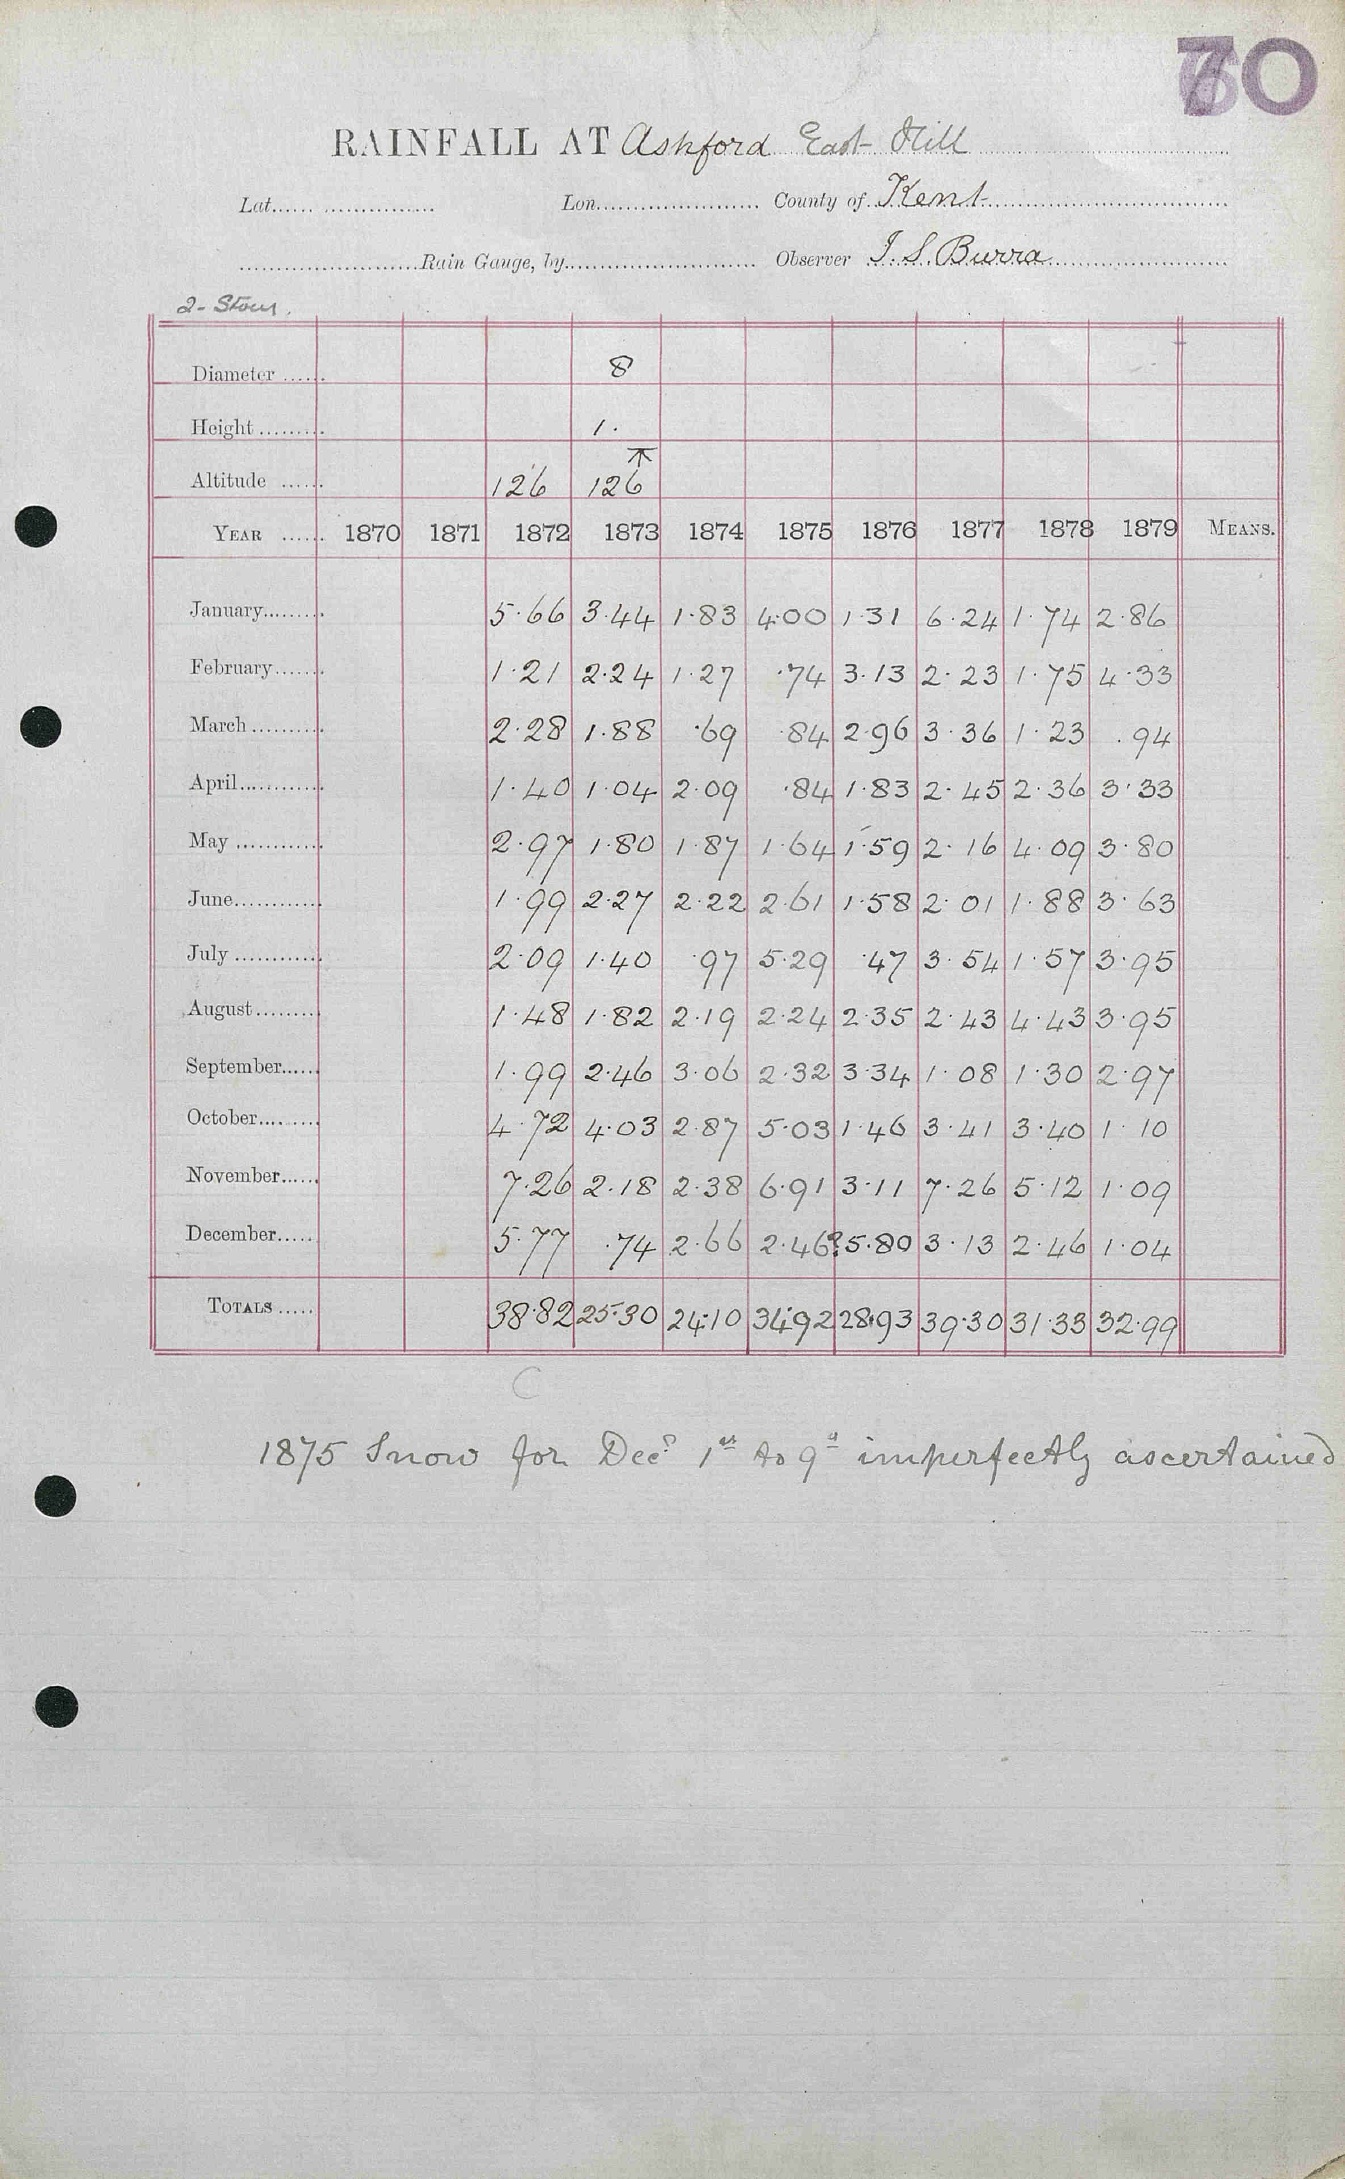 70
RAINFALL AT Ashford East Hill
Lat. Lon. County of Kent
Rain Gauge, by Observer I. S. Burra
2 - Stour.
Diameter 8
Height 1.
Altitude 126 126
YEAR 1870 1871 1872 1873 1874 1875 1876 1877 1878 1879 MEANS.
January 5.66 3.44 1.83 4.00 1.31 6.24 1.74 2.86
February 1.21 2.24 1.27 .74 3.13 2.23 1.75 4.33
March 2.28 1.88 .69 .84 2.96 3.36 1.23 .94
April 1.40 1.04 2.09 .84 1.83 2.45 2.36 3.33
May 2.97 1.80 1.87 1.64 1.59 2.16 4.09 3.80
June 1.99 2.27 2.22 2.61 1.58 2.01 1.88 3.63
July 2.09 1.40 .97 5.29 .47 3.54 1.57 3.95
August 1.48 1.82 2.19 2.24 2.35 2.43 4.43 3.95
September 1.99 2.46 3.06 2.32 3.34 1.08 1.30 2.97
October 4.72 4.03 2.87 5.03 1.46 3.41 3.40 1.10
November 7.26 2.18 2.38 6.91 3.11 7.26 5.12 1.09
December 5.77 .74 2.66 2.46? 5.80 3.13 2.46 1.04
TOTALS 38.82 25.30 24.10 34.92 28.93 39.30 31.33 32.99
C
1875 Snow for Decr 1st to 9th imperfectly ascertained